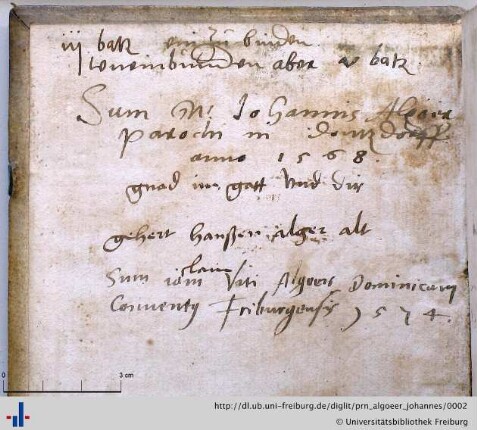 iij batz ein zu binden
von einbinden aber v batz
Sum M. Johannis Algoer
parochi in Dontzdorff
anno 1568.
gnad im gott und dir
gehert hanßen alger alt
Sum iam Viti Algoers Dominicani
Conventus Friburgensis 1574.
3 cm
http://dl.ub.uni-freiburg.de/diglit/prn_algoeer_johannes/0002
© Universitätsbibliothek Freiburg